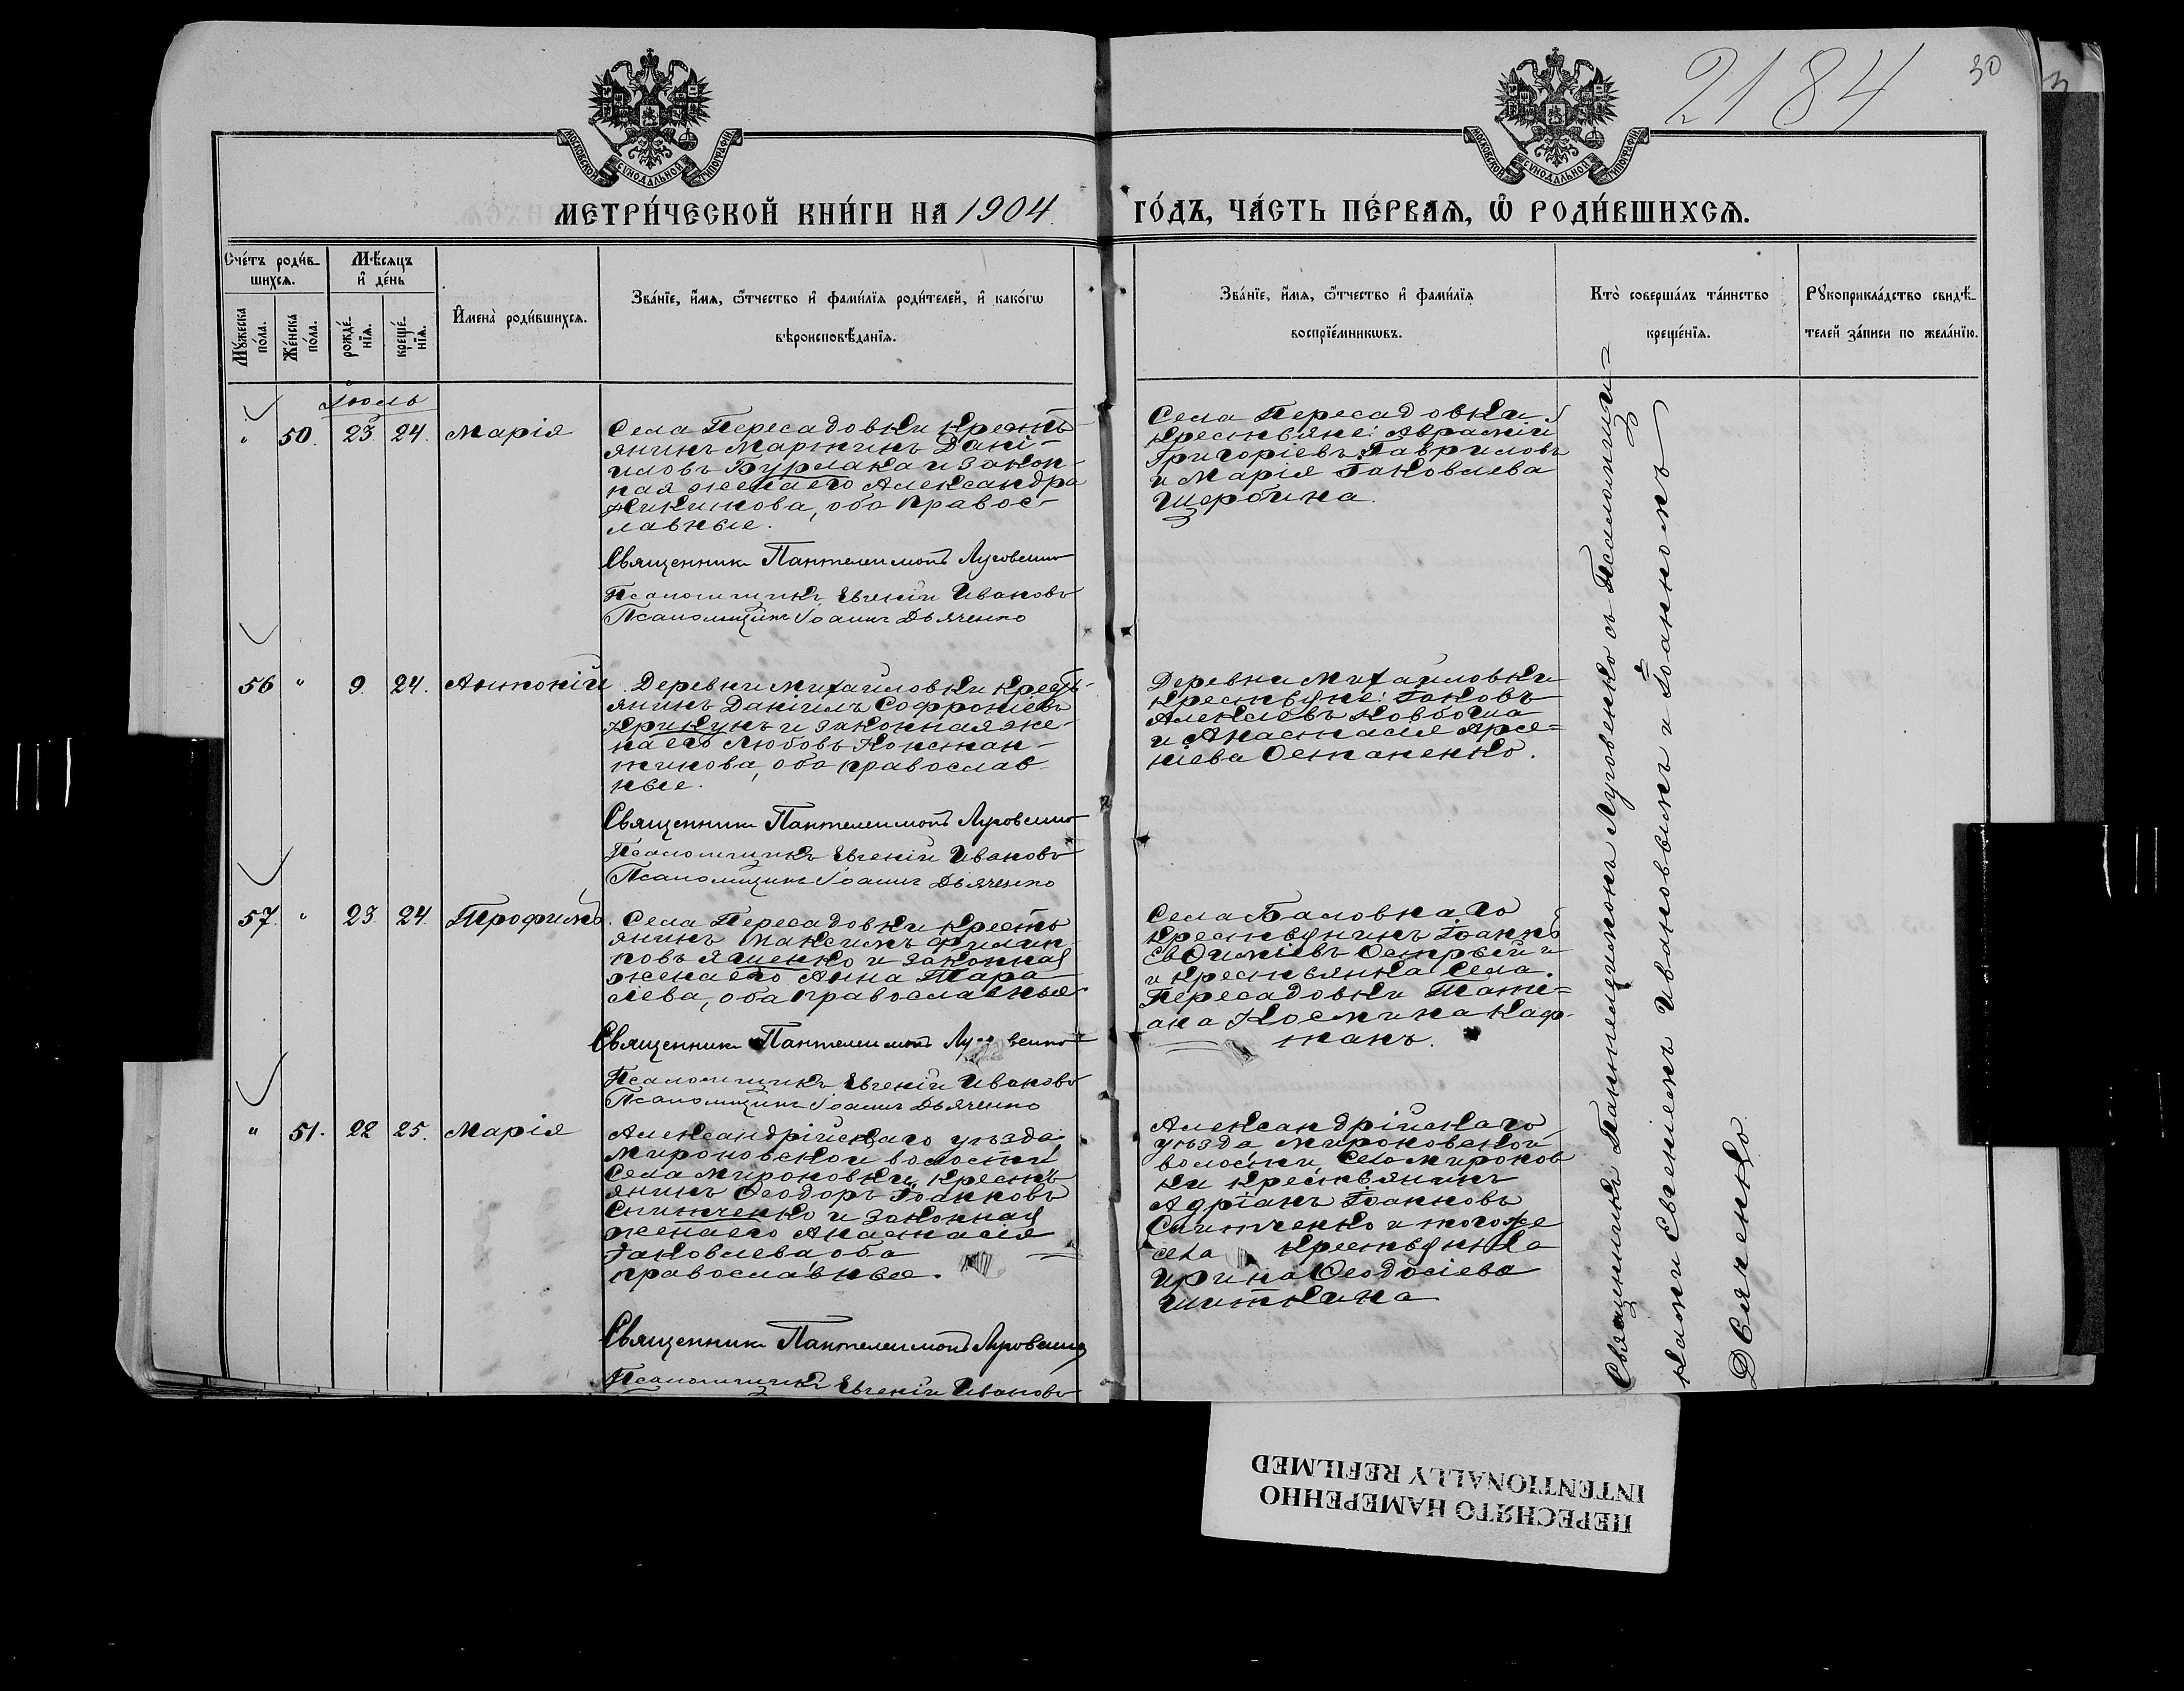 2184
30
МОСКОВСКОЙ СѴНОДАЛЬНОЙ ТИПОГРАФІИ
МОСКОВСКОЙ СѴНОДАЛЬНОЙ ТИПОГРАФІИ
МЕТРИ́ЧЕСКОЙ КНИ́ГИ НА 1904
ГО́ДЪ, ЧА́СТЬ ПЕ́РВАѦ, Ѽ РОДИ́ВШИХСѦ.
Сче́тъ роди́в-
шихсѧ.
Мꙋ́жеска по́ла.
Же́нска по́ла.
Мѣ́сѧцъ
и҆ де́нь
рожде́-
нїѧ.
креще́-
нїѧ.
И҆мена̀ роди́вшихсѧ.
Зва́нїе, и҆́мѧ, ѻ҆́тчество и҆ фами́лїѧ роди́телей, и҆ како́гѡ
вѣроисповѣ́данїѧ.
Зва́нїе, и҆́мѧ, ѻ҆́тчество и҆ фами́лїѧ
воспрїе́мникѡвъ.
Кто̀ соверша́лъ та́инство
креще́нїѧ.
Рꙋкоприкла́дство свидѣ́-
телей за́писи по жела́нїю.
Іюль
" 50. 23 24. Марія
Села Пересадовки кресть
янинъ Мартинъ Дані-
иловъ Бурлака и закон-
ная жена его Александра
Никитова, оба правос-
лавные.
Священникъ Пантелеимонъ Луговенко
Псаломщикъ Евгеній Ивановъ
Псаломщикъ Іоаннъ Дьяченко
Села Пересадовки
крестьяне: Аврамій
Григоріевъ Гавриловъ
и Марія Іаковлева
Щербина.
56 " 9. 24. Антоній
Деревни Михайловки кресть-
янинъ Даніилъ Софроніевъ
Крикунъ и законная же-
на его Любовь Констан-
тинова, оба православ-
ные.
Священникъ Пантелеимонъ Луговенко
Псаломщикъ Евгеній Ивановъ
Псаломщикъ Іоаннъ Дьяченко
Деревни Михайловки
крестьяне: Іаковъ
Алексіевъ
и Анастасія Арсе=
ніева Остапенко.
57. " 23. 24. Трофимъ
Села Пересадовки кресть
янинъ Максимъ Филип-
повъ Яценко и законная
жена его Анна Тара-
сіева, оба православные
Священникъ Пантелеимонъ Луговенко
Псаломщикъ Евгеній Ивановъ
Псаломщикъ Іоаннъ Дьяченко
Села Баловнаго
крестьянинъ Іоаннъ
Евѳиміевъ Острый
и крестьянка села
Пересадовки Тати=
ана Космина Каф-
танъ.
" 51. 22 25. Марія
Александрійскаго уѣзда
Мироновской волости
села Мироновки, кресть
янинъ Ѳеодоръ Іоанновъ
Снитченко и законная
жена его Анастасія
Іаковлева оба
православные.
Священникъ Пантелеимонъ Луговенко
Псаломщикъ Евгеній Ивановъ
Александрійскаго
уѣзда Мироновской
волости, села Миронов
ки крестьянинъ
Адріанъ Іоанновъ
Снитченко и тогоже
села крестьянка
Ирина Ѳеодосіева
Шиткина
Священникъ Пантелеимонъ Луговенко съ Псаломщи=
ками Евгеніемъ Ивановымъ и Іоанномъ
Дьяченко
ПЕРЕСНЯТО НАМЕРЕННО
INTENTIONALLY REFILMED